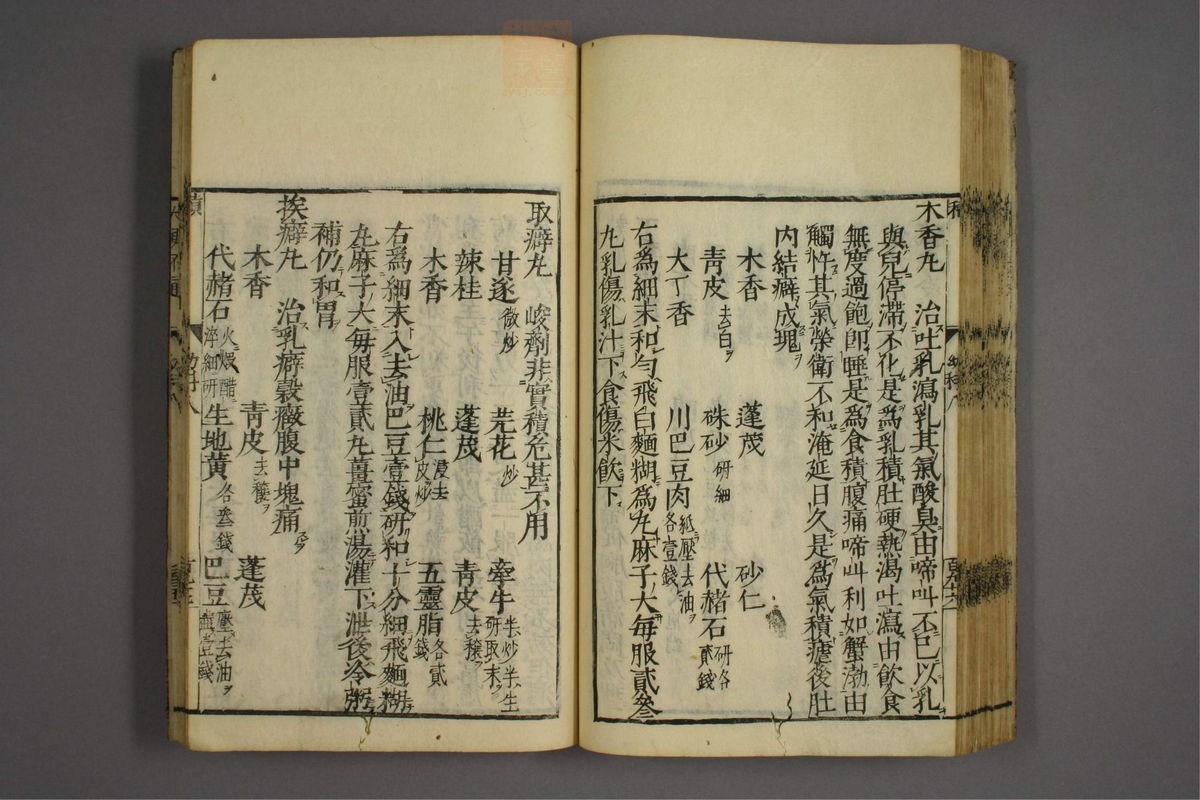 木香丸　治吐乳瀉乳其氣酸臭由啼叫不已以乳
與兒停滯不化是爲乳積肚硬熱渴吐瀉由飲食
無度過飽卽睡是爲食積腹痛啼叫利如蟹渤由
觸忤其氣榮衞不和淹延日久是爲氣積蘊後肚
内結癖成塊
木香　蓬莪　砂仁
青皮去白　硃砂研細　代赭石研各貳錢
大丁香　川巴豆肉紙壓去油各壹錢
右爲細末和勻飛白麵糊爲丸麻子大每服貳叄
丸乳傷乳汁下食傷米飲下
取癖丸　峻劑非實積危甚不用
甘遂微炒　芫花炒　牽牛半炒半生研取末
辣桂　蓬莪　青皮去穰
木香　桃仁浸去皮炒　五靈脂各貳錢
右爲細末入去油巴豆壹錢研和十分細飛麵糊
丸麻子大每服壹貳丸薑蜜煎湯灌下泄後冷粥
補仍和胃
挨癖丸　治乳癖穀癥腹中塊痛
木香　青皮去穰　蓬莪
代赭石火煆醋淬細研　生地黃各叄錢　巴豆壓去油壹錢